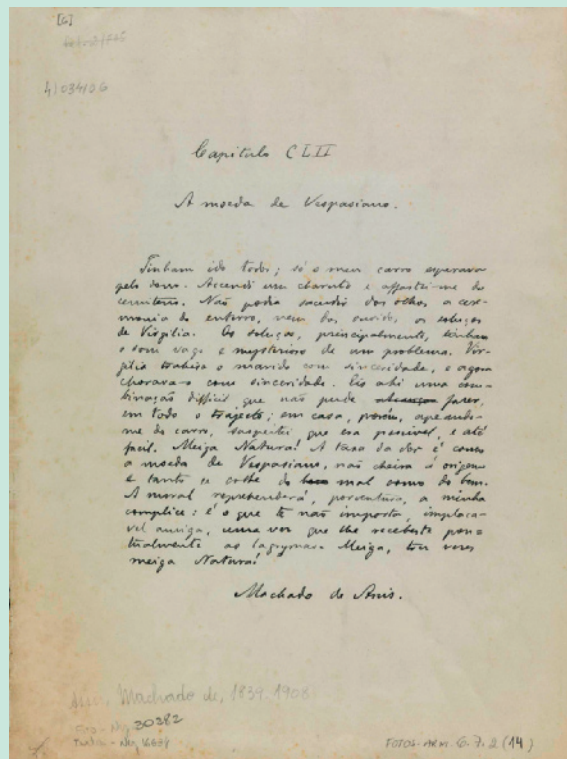 [G]
4)034)0G
Capitulo CLII
A moeda de Vespasiano.
Tinham ido todos; só o meu carro esperava
pelo dono. Accendi um charuto e affastei-me do
cemiterio. Não podia sacudir dos olhos a cere-
monia do enterro, nem dos ouvidos os soluços
de Virgilia. Os soluços, principalmente, tinham
o som vago e mysterioso de um problema. Vir-
gilia trahira o marido com sinceridade, e agora
chorava-o com sinceridade. Eis ahi uma com-
binação difficil que não pude fazer,
em todo o trajecto; em casa, porém, apeando-
me do carro, suspeitei que era possivel, e até
facil. Meiga Natura! A taxa da dor é como
a moeda de Vespasiano, não cheira á origem
e tanto se colhe do mal como do bem.
A moral reprehenderá, porventura, a minha
complice: é o que te não importa, implaca-
vel amiga, uma vez que lhe recebeste pon-
tualmente as lagrymas. Meiga, tres vezes
meiga Natura!
Machado de Assis.
Assis, Machado de, 1839-1908
30282
FOTOS-ARM. 6.7.2 (14)